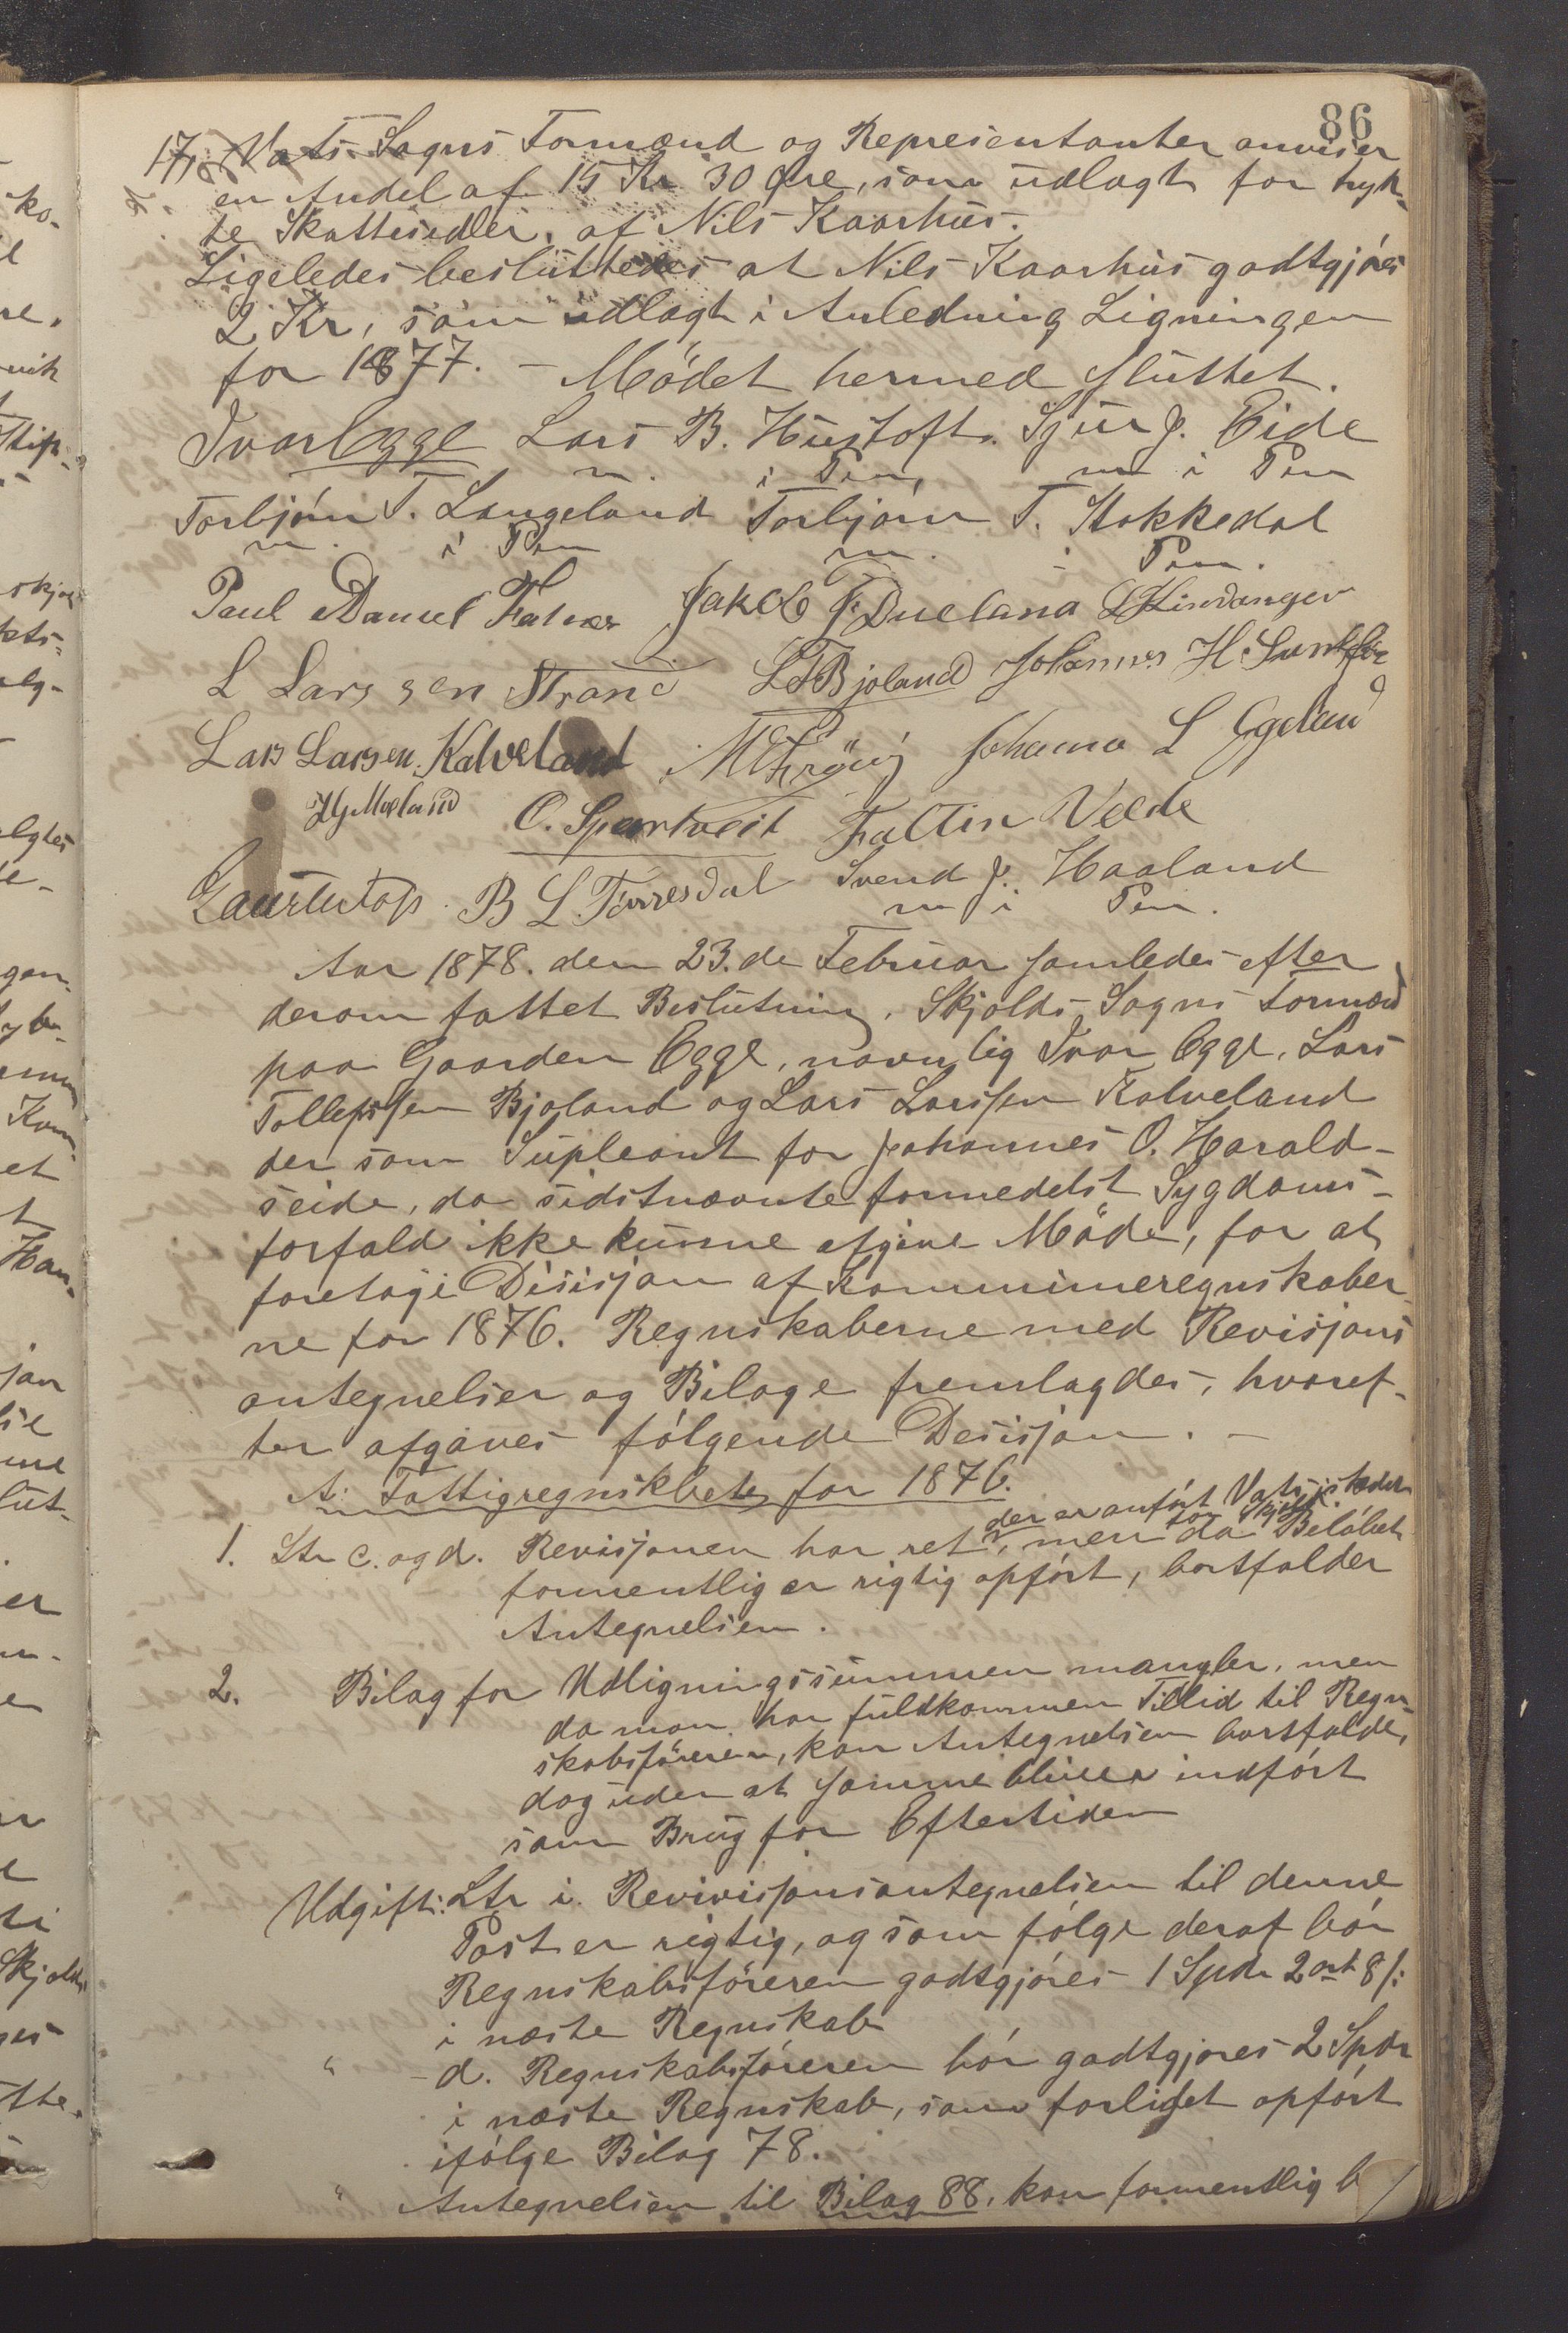 86
17, Vats Sogns Formænd og Representanter anviser
en Andel af 15 Kr 30 Øre, som udlagt for tryk-
te Skattesedler, af Nils Kaarhus.
Ligeledes besluttedes at Nils Kaarhus godtgjöres
2 Kr, som udlagt i Anledning Ligningen
for 1877. – Mödet hermed sluttet.
Ivar Egge Lars B. Hustoft. Sjur J. Eide
m. i Pen, m i Pen
Torbjörn T. Langeland Torbjörn T. Stokkedal
m. i Pen m. i Pen.
Paul Daniel Jakob J. Dueland
L Larssen Strand L T Bjoland Johannes H
Lars Larsen Kalveland Johannes L Egeland
O. Spartveit Faltin Velde
B L Torresdal Svend J. Haaland
m i Pen.
Aar 1878. den 23.de Februar samledes efter
derom fattet Beslutning, Skjolds Sogns Formænd
paa Gaarden Egge, navnlig Ivar Egge, Lars
Tollefssen Bjoland og Lars Larssen Kalveland
der som Supleant for Johannes O. Harald-
seide, da sidstnævnte formedelst Sygdoms-
forfald ikke kunne afgive Möde, for at
foretage Disisjon af Kommuneregnskaber-
ne for 1876. Regnskaberne med Revisjons
antegnelser og Bilage fremlagdes, hvoref-
ter afgaves fölgende Desisjon. –
A. Fattigregnskbete for 1876.
der er anfört Vats istedet
for Skjold
1. Ltr c. og d. Revisjonen har ret, men da Belöbet
formentlig er rigtig opfört, bortfalder
Antegnelsen.
2. Bilag for Udligningssummen mangler, men
da man har fuldkommen Tillid til Regn-
skabsföreren, kan Antegnelsen bortfalde,
dog uden at samme bliver indfört
som Brug for Eftertiden
Udgift: Ltr i. Revivisjonsantegnelsen til denne
Post er rigtig, og som fölge deraf bör
Regnskabsföreren godtgjöres 1 Spdr 2 ort 8 s:
i næste Regnskab
" – d. Regnskabsföreren bör godtgjores 2 Spdr
i næste Regnskab, som forlidet opfört
ifölge Bilag 78.
" Antegnelsen til Bilag 88, kan formentlig b